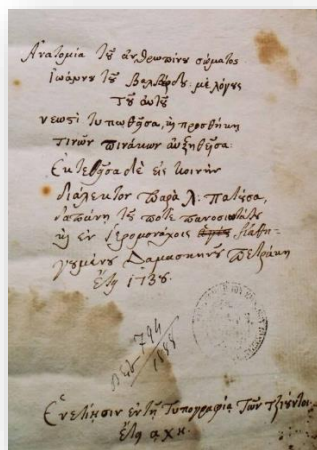 Ἀνατομία τοῦ ἀνθρωπίνου σώματος
Ἰωάννου τοῦ Βαλβέρδε· μὲ λόγους
τοῦ αὐτοῦ
νεωστὶ τυπωθεῖσα, καὶ προσθήκῃ
τινῶν πινάκων αὐξηθεῖσα·
Ἐκτεθεῖσα δὲ εἰς κοινὴν
διάλεκτον παρὰ Λ: Πατέσα,
δαπάνῃ τοῦ ποτὲ πανοσιωτάτου
καὶ ἐν ἱερομονάχοις καθη-
γουμένου Δαμασκηνοῦ Πετράκη
ἔτη 1738.
794
1885
Ἐνετίησιν ἐν τῇ Τυπογραφίᾳ τῶν
ἔτη αχη.